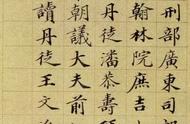 刑部廣東司
翰林院庶吉
丹徒潘恭壽
朝議大夫前
讀丹徒王文治